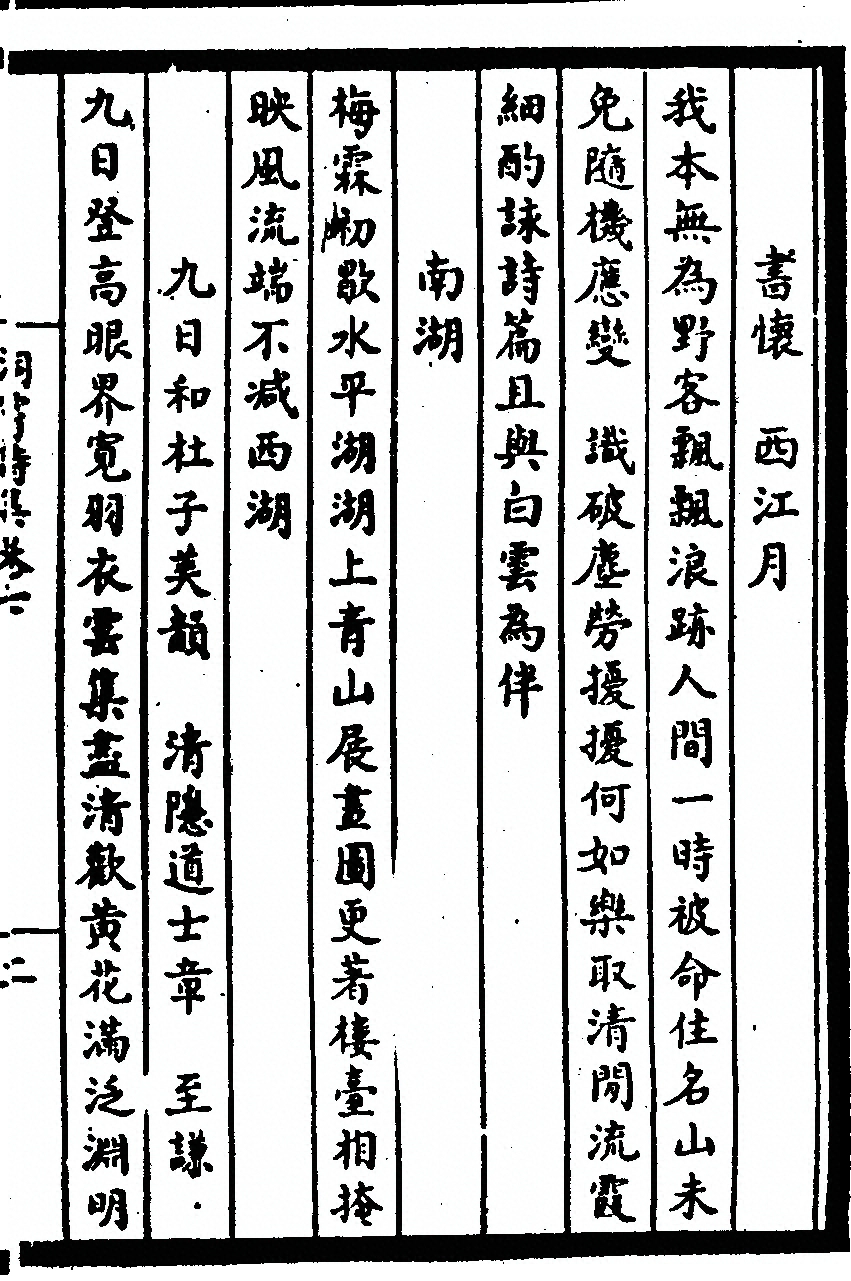 書懷　西江月
我本無為野客飄飄浪跡人間一時被命住名山未
免隨機應變　識破塵勞擾擾何如樂取清閒流霞
細酌詠詩篇且與白雲為伴
南湖
梅霖初歇水平湖湖上青山展畫圖更著樓臺相掩
映風流端不减西湖
九日和杜子美韻　清隱道士章　至謙
九日登高眼界寬羽衣雲集盡清歡黄花滿泛淵明
洞霄詩集卷